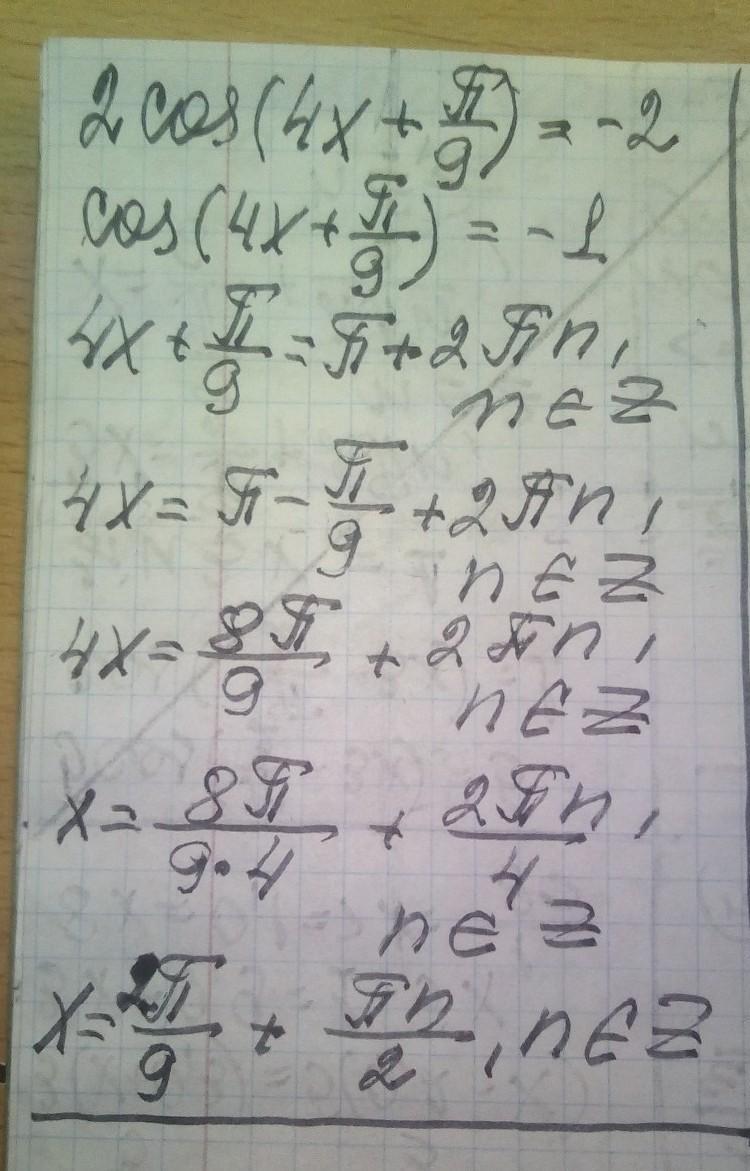 2cos(4x + π/9) = -2
cos(4x + π/9) = -1
4x + π/9 = π + 2πn,
n ∈ Z
4x = π - π/9 + 2πn,
n ∈ Z
4x = 8π/9 + 2πn,
n ∈ Z
x = 8π/(9·4) + 2πn/4,
n ∈ Z
x = 2π/9 + πn/2, n ∈ Z